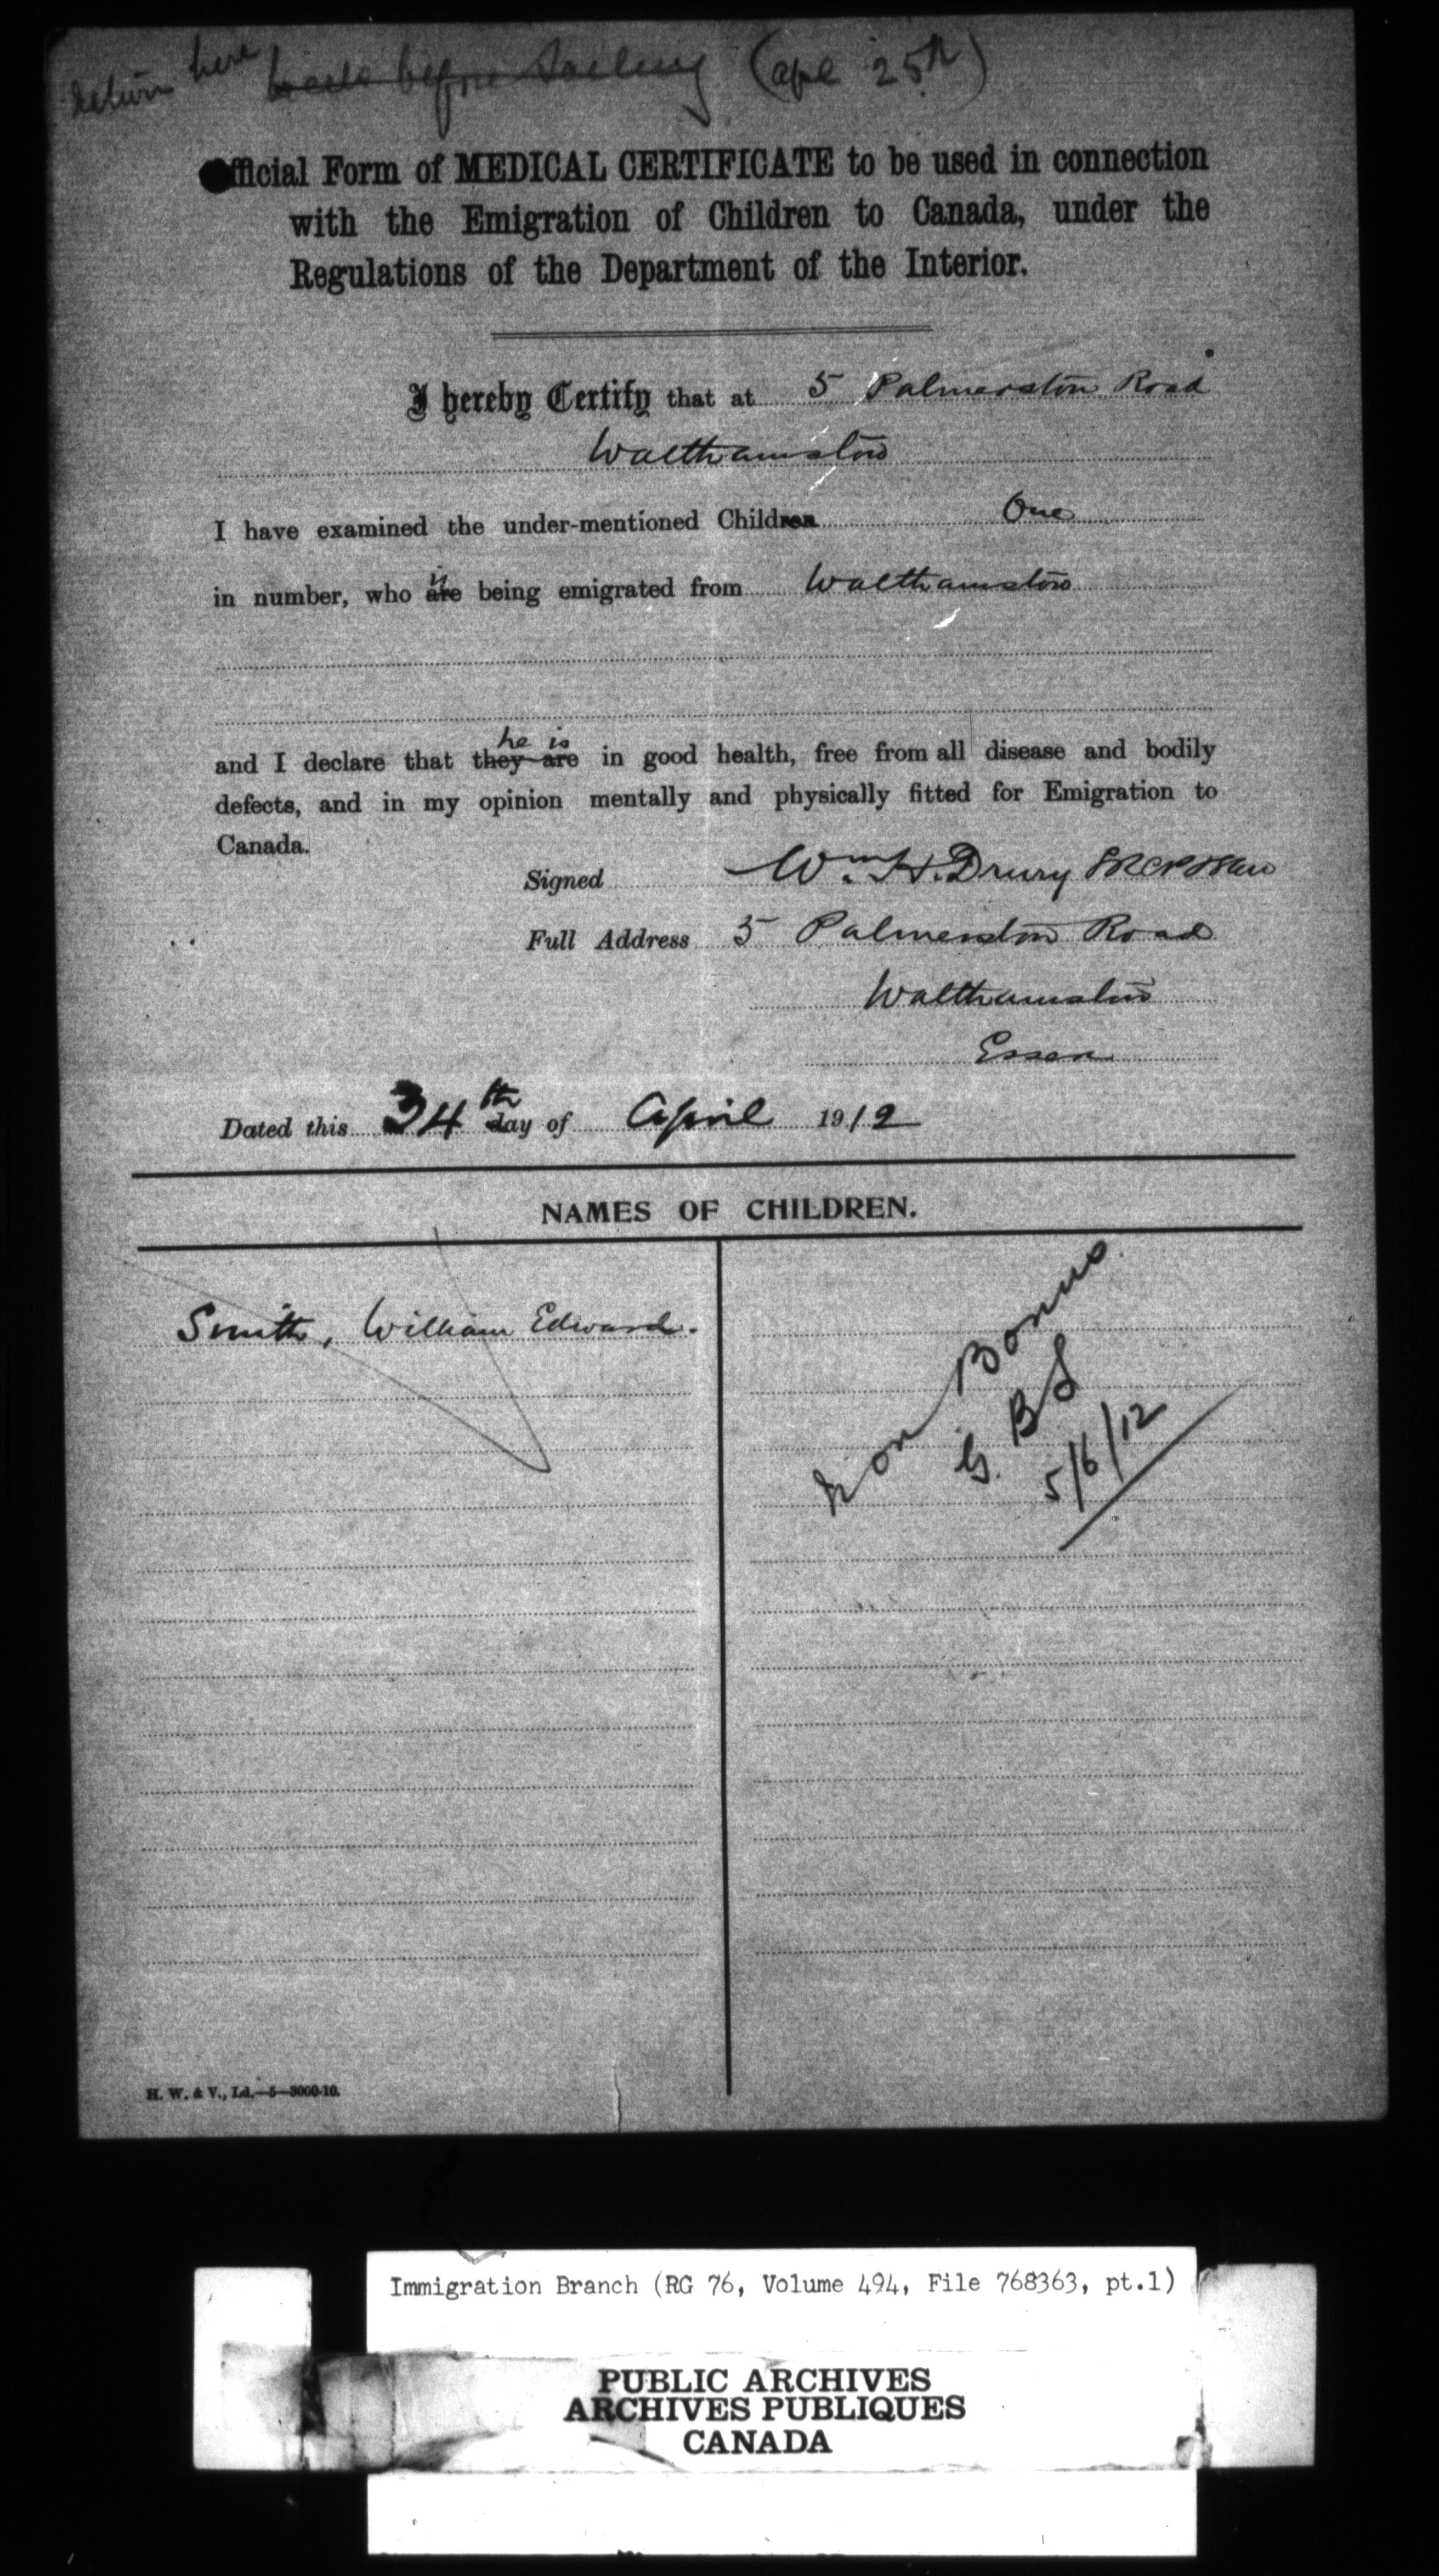 Return here back before sailing (Apl 25th)
Official Form of MEDICAL CERTIFICATE to be used in connection
with the Emigration of Children to Canada, under the
Regulations of the Department of the Interior.
I hereby Certify that at 5 Palmerston Road
Walthamstow
I have examined the under-mentioned Children One
is
in number, who are being emigrated from Walthamstow
he is
and I declare that they are in good health, free from all disease and bodily
defects, and in my opinion mentally and physically fitted for Emigration to
Canada.
Signed Wm. H. Drury
Full Address 5 Palmerston Road
Walthamstow
Essex
Dated this 24th day of April 1912
NAMES OF CHILDREN.
Smith, William Edward.
Non Bonus.
G. B S
5/6/12
H. W. & V., Ld.—5—3000-10.
Immigration Branch (RG 76, Volume 494, File 768363, pt.1)
PUBLIC ARCHIVES
ARCHIVES PUBLIQUES
CANADA